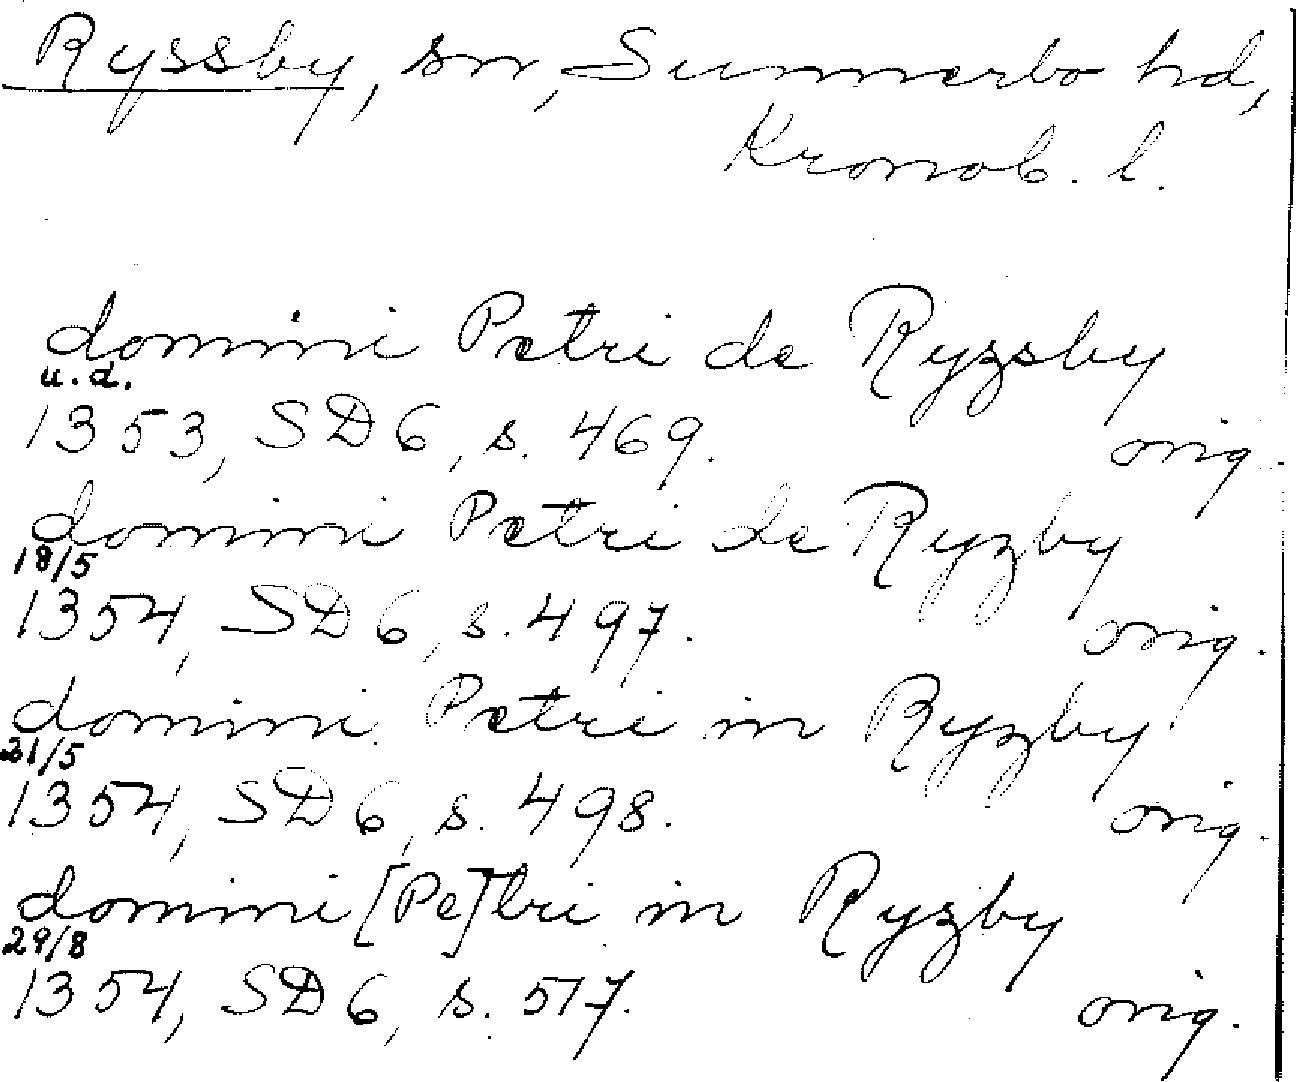 Ryssby, sn, Sunnerbo hd,
Kronob. l.
domini Petri de Ryzsby
u.d.
1353, SD 6, s. 469. orig.
domini Petri de Ryzby
18/5
1354, SD 6, s. 497. orig.
domini Petri in Ryzby
21/5
1354, SD 6, s. 498. orig.
domini [Pe]tri in Ryzby
29/8
1354, SD 6, s. 517. orig.